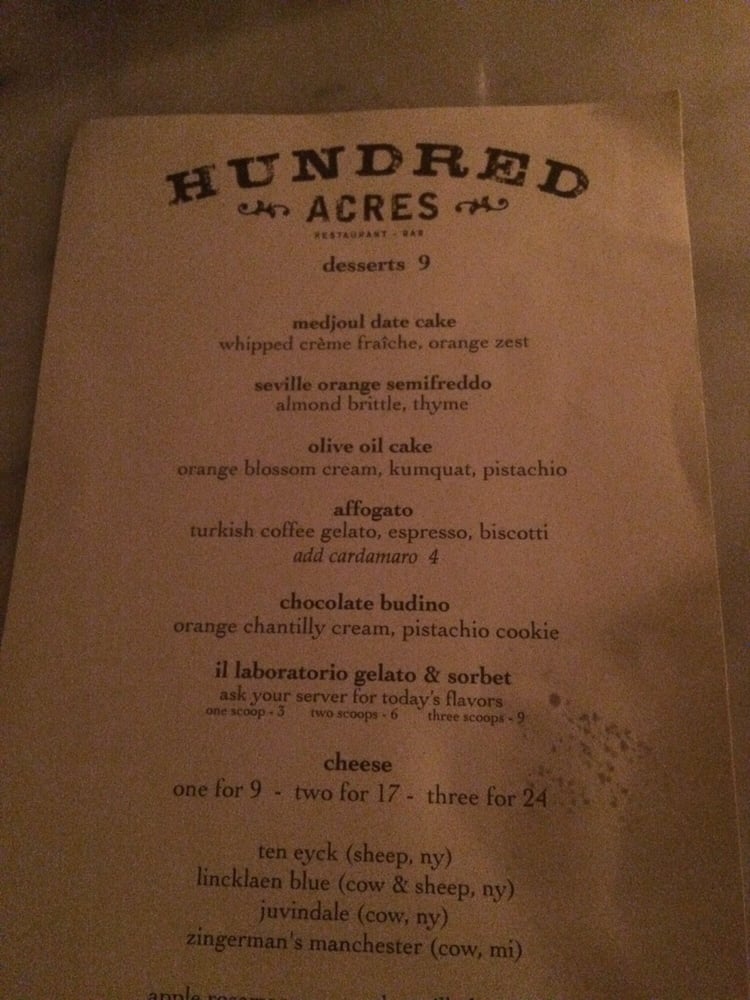 HUNDRED
ACRES
RESTAURANT - BAR
desserts 9
medjoul date cake
whipped crème fraîche, orange zest
seville orange semifreddo
almond brittle, thyme
olive oil cake
orange blossom cream, kumquat, pistachio
affogato
turkish coffee gelato, espresso, biscotti
add cardamaro 4
chocolate budino
orange chantilly cream, pistachio cookie
il laboratorio gelato & sorbet
ask your server for today's flavors
one scoop - 3 two scoops - 6 three scoops - 9
cheese
one for 9 - two for 17 - three for 24
ten eyck (sheep, ny)
lincklaen blue (cow & sheep, ny)
juvindale (cow, ny)
zingerman's manchester (cow, mi)
apple